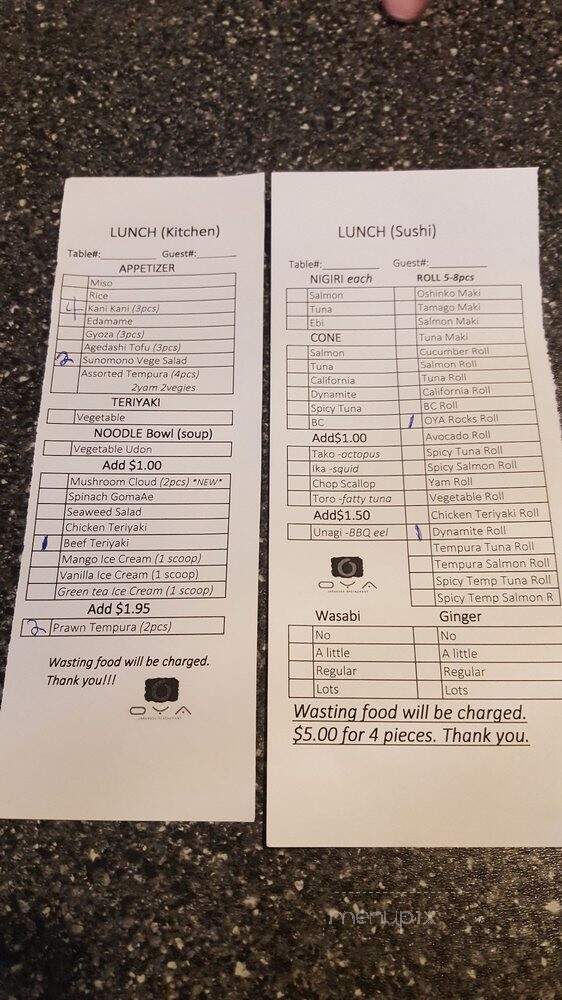 LUNCH (Kitchen)
Table#:________ Guest#:________
APPETIZER
Miso
Rice
4 Kani Kani (3pcs)
Edamame
Gyoza (3pcs)
Agedashi Tofu (3pcs)
2 Sunomono Vege Salad
Assorted Tempura (4pcs)
2yam 2vegies
TERIYAKI
Vegetable
NOODLE Bowl (soup)
Vegetable Udon
Add $1.00
Mushroom Cloud (2pcs) *NEW*
Spinach GomaAe
Seaweed Salad
Chicken Teriyaki
1 Beef Teriyaki
Mango Ice Cream (1 scoop)
Vanilla Ice Cream (1 scoop)
Green tea Ice Cream (1 scoop)
Add $1.95
2 Prawn Tempura (2pcs)
Wasting food will be charged.
Thank you!!!
OYA
JAPANESE RESTAURANT
LUNCH (Sushi)
Table#:________ Guest#:________
NIGIRI each
Salmon
Tuna
Ebi
CONE
Salmon
Tuna
California
Dynamite
Spicy Tuna
BC
Add$1.00
Tako -octopus
Ika -squid
Chop Scallop
Toro -fatty tuna
Add$1.50
Unagi -BBQ eel
OYA
JAPANESE RESTAURANT
ROLL 5-8pcs
Oshinko Maki
Tamago Maki
Salmon Maki
Tuna Maki
Cucumber Roll
Salmon Roll
Tuna Roll
California Roll
BC Roll
1 OYA Rocks Roll
Avocado Roll
Spicy Tuna Roll
Spicy Salmon Roll
Yam Roll
Vegetable Roll
Chicken Teriyaki Roll
1 Dynamite Roll
Tempura Tuna Roll
Tempura Salmon Roll
Spicy Temp Tuna Roll
Spicy Temp Salmon R
Wasabi
No
A little
Regular
Lots
Ginger
No
A little
Regular
Lots
Wasting food will be charged.
$5.00 for 4 pieces. Thank you.
menupix